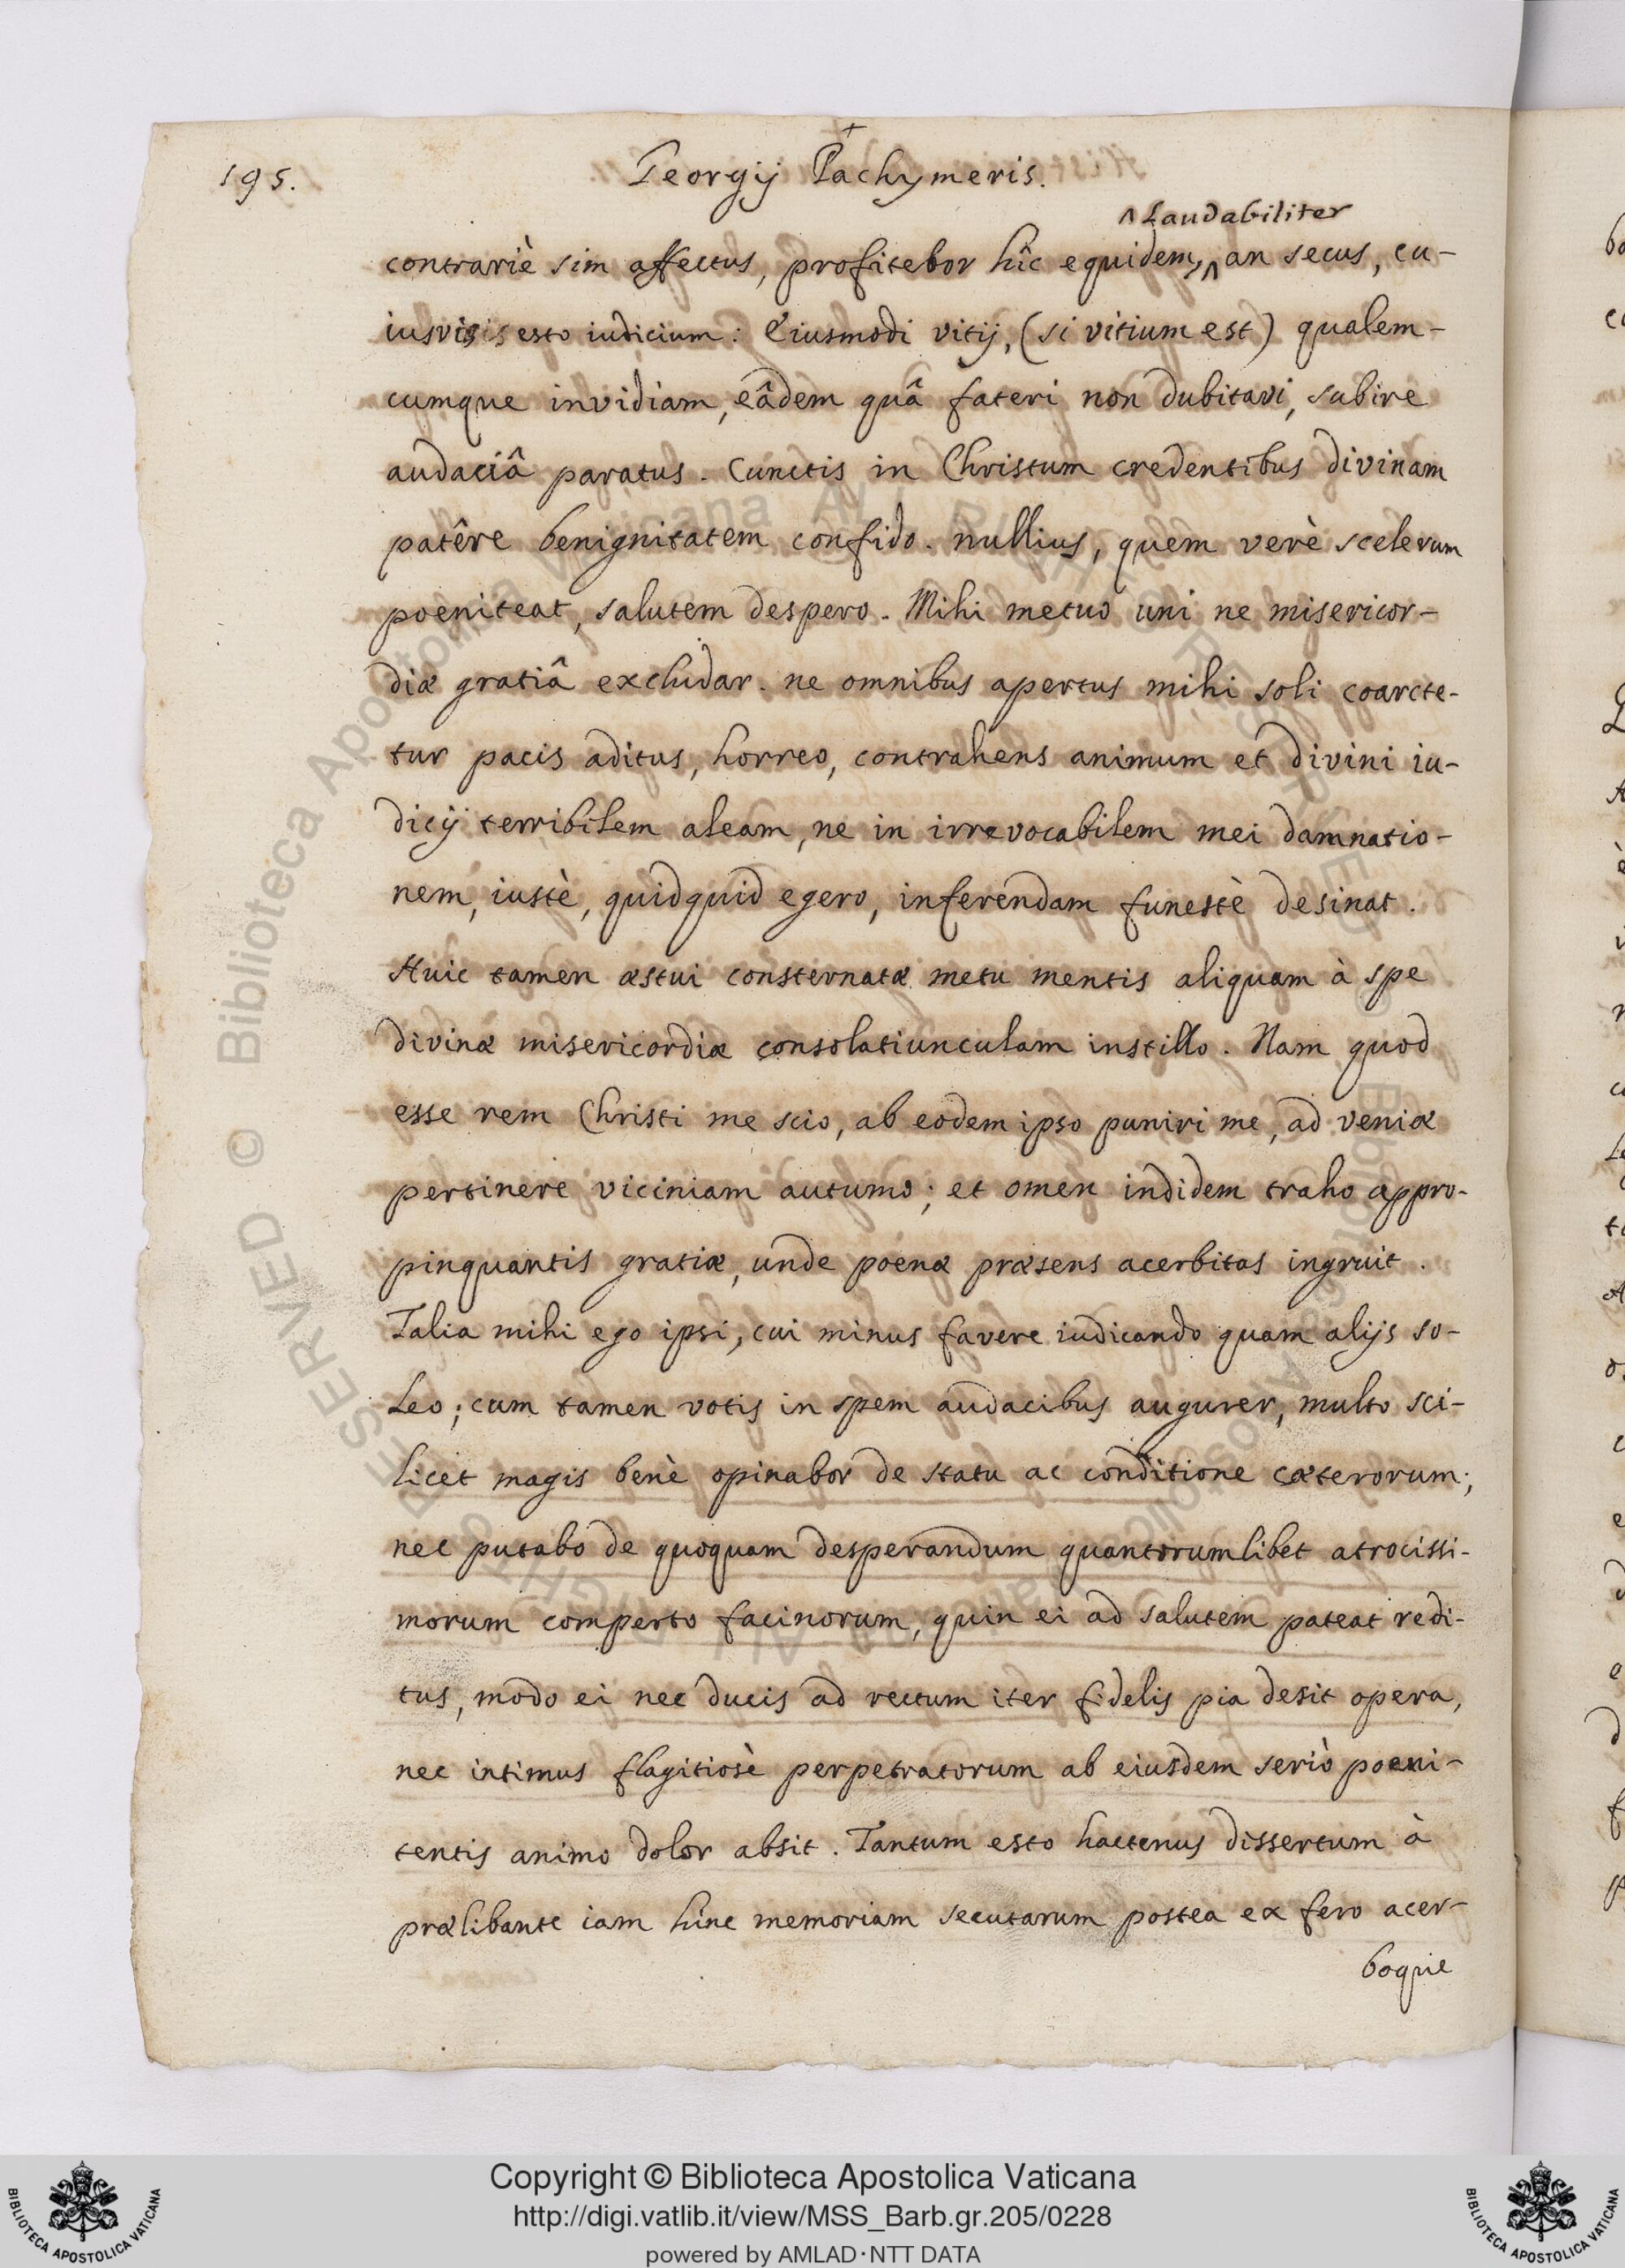 195.
Georgij Pachymeris.
^ Laudabiliter
contrariè sim affectus, profitebor hîc equidem, ^ an secus, cu-
iusvis esto iudicium: Eiusmodi vitij, (si vitium est) qualem-
cumque invidiam, eâdem quâ fateri non dubitavi, subire
audaciâ paratus. Cunctis in Christum credentibus divinam
patêre benignitatem confido. nullius, quem verè scelerum
poeniteat, salutem despero. Mihi metuo uni ne misericor-
diæ gratiâ excludar. ne omnibus apertus mihi soli coarcte-
tur pacis aditus, horreo, contrahens animum et divini iu-
dicij terribilem aleam, ne in irrevocabilem mei damnatio-
nem, iustè, quidquid egero, inferendam funestè desinat.
Huic tamen æstui consternatæ metu mentis aliquam à spe
divinæ misericordiæ consolatiunculam instillo. Nam quod
esse rem Christi me scio, ab eodem ipso puniri me, ad veniæ
pertinere viciniam autumo; et omen indidem traho appro-
pinquantis gratiæ, unde poenæ præsens acerbitas ingruit.
Talia mihi ego ipsi, cui minus favere iudicando quam alijs so-
leo; cum tamen votis in spem audacibus augurer, multo sci-
licet magis benè opinabor de statu ac conditione cæterorum;
nec putabo de quoquam desperandum quantorumlibet atrocissi-
morum comperto facinorum, quin ei ad salutem pateat redi-
tus, modo ei nec ducis ad rectum iter fidelis pia desit opera,
nec intimus flagitiosè perpetratorum ab eiusdem seriò poeni-
tentis animo dolor absit. Tantum esto hactenus dissertum à
prælibante iam hinc memoriam secutarum postea ex fero acer-
boque
© Biblioteca Apostolica Vaticana ALL RIGHTS RESERVED
Copyright © Biblioteca Apostolica Vaticana
http://digi.vatlib.it/view/MSS_Barb.gr.205/0228
powered by AMLAD·NTT DATA
BIBLIOTECA APOSTOLICA VATICANA
BIBLIOTECA APOSTOLICA VATICANA